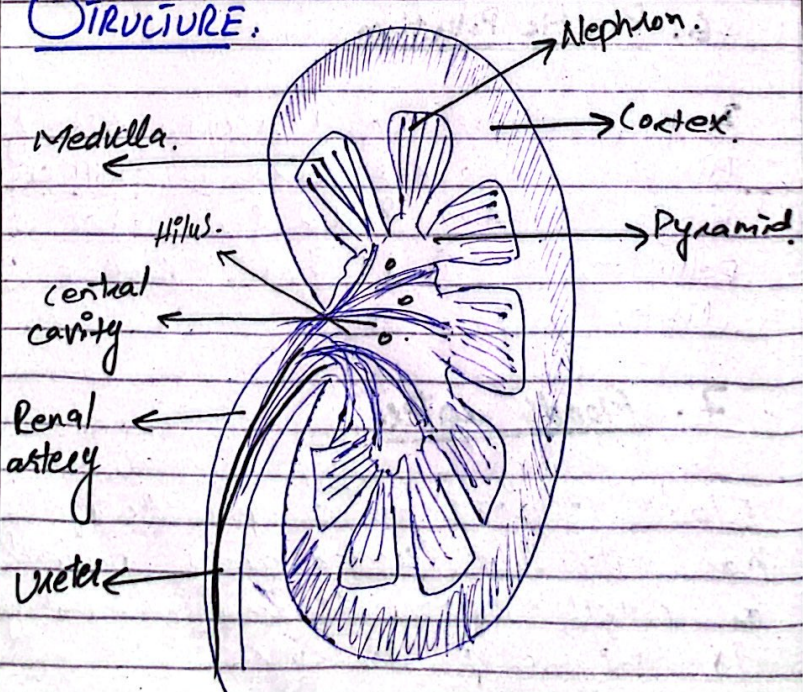 STRUCTURE.
Nephron.
Medulla.
Cortex.
Hilus.
Pyramid.
central
cavity
Renal
artery
Ureter